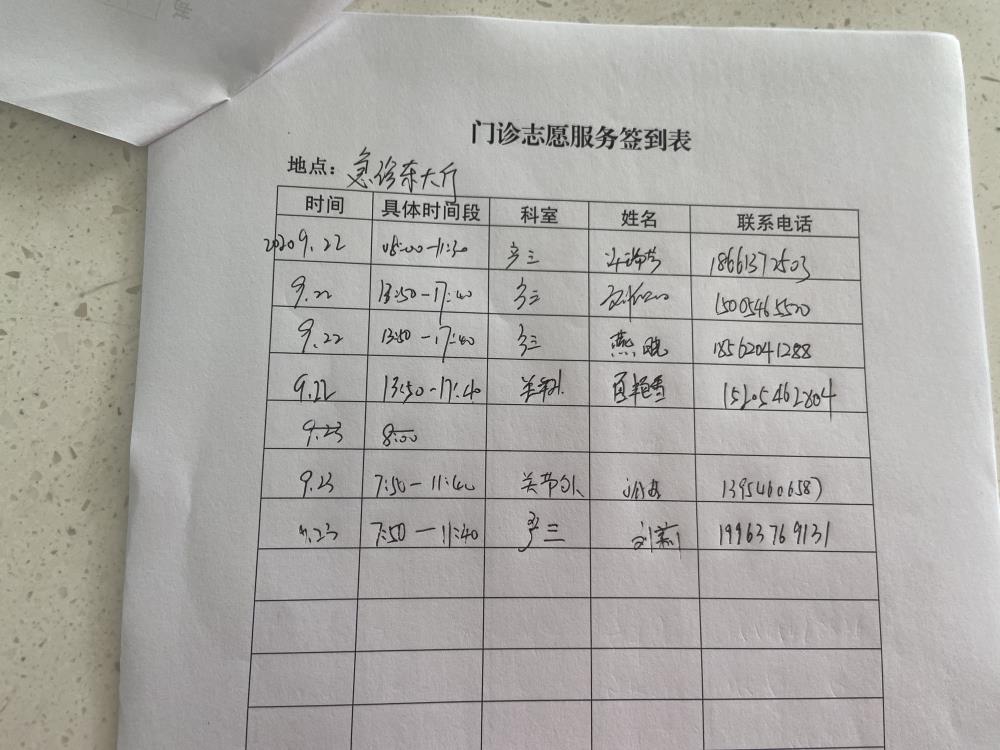 门诊志愿服务签到表
地点：急诊东大厅
时间 具体时间段 科室 姓名 联系电话
2020 9.22 08:00-11:30 产三 18661372503
9.22 13:50-17:40 产三 15005465520
9.22 13:50-17:40 产三 燕 18562041288
9.22 13:50-17:40 艳雪 15205462804
9.23 8:00
9.23 7:50-11:40 关节外 13954606587
9.23 7:50-11:40 产三 刘 19963769131